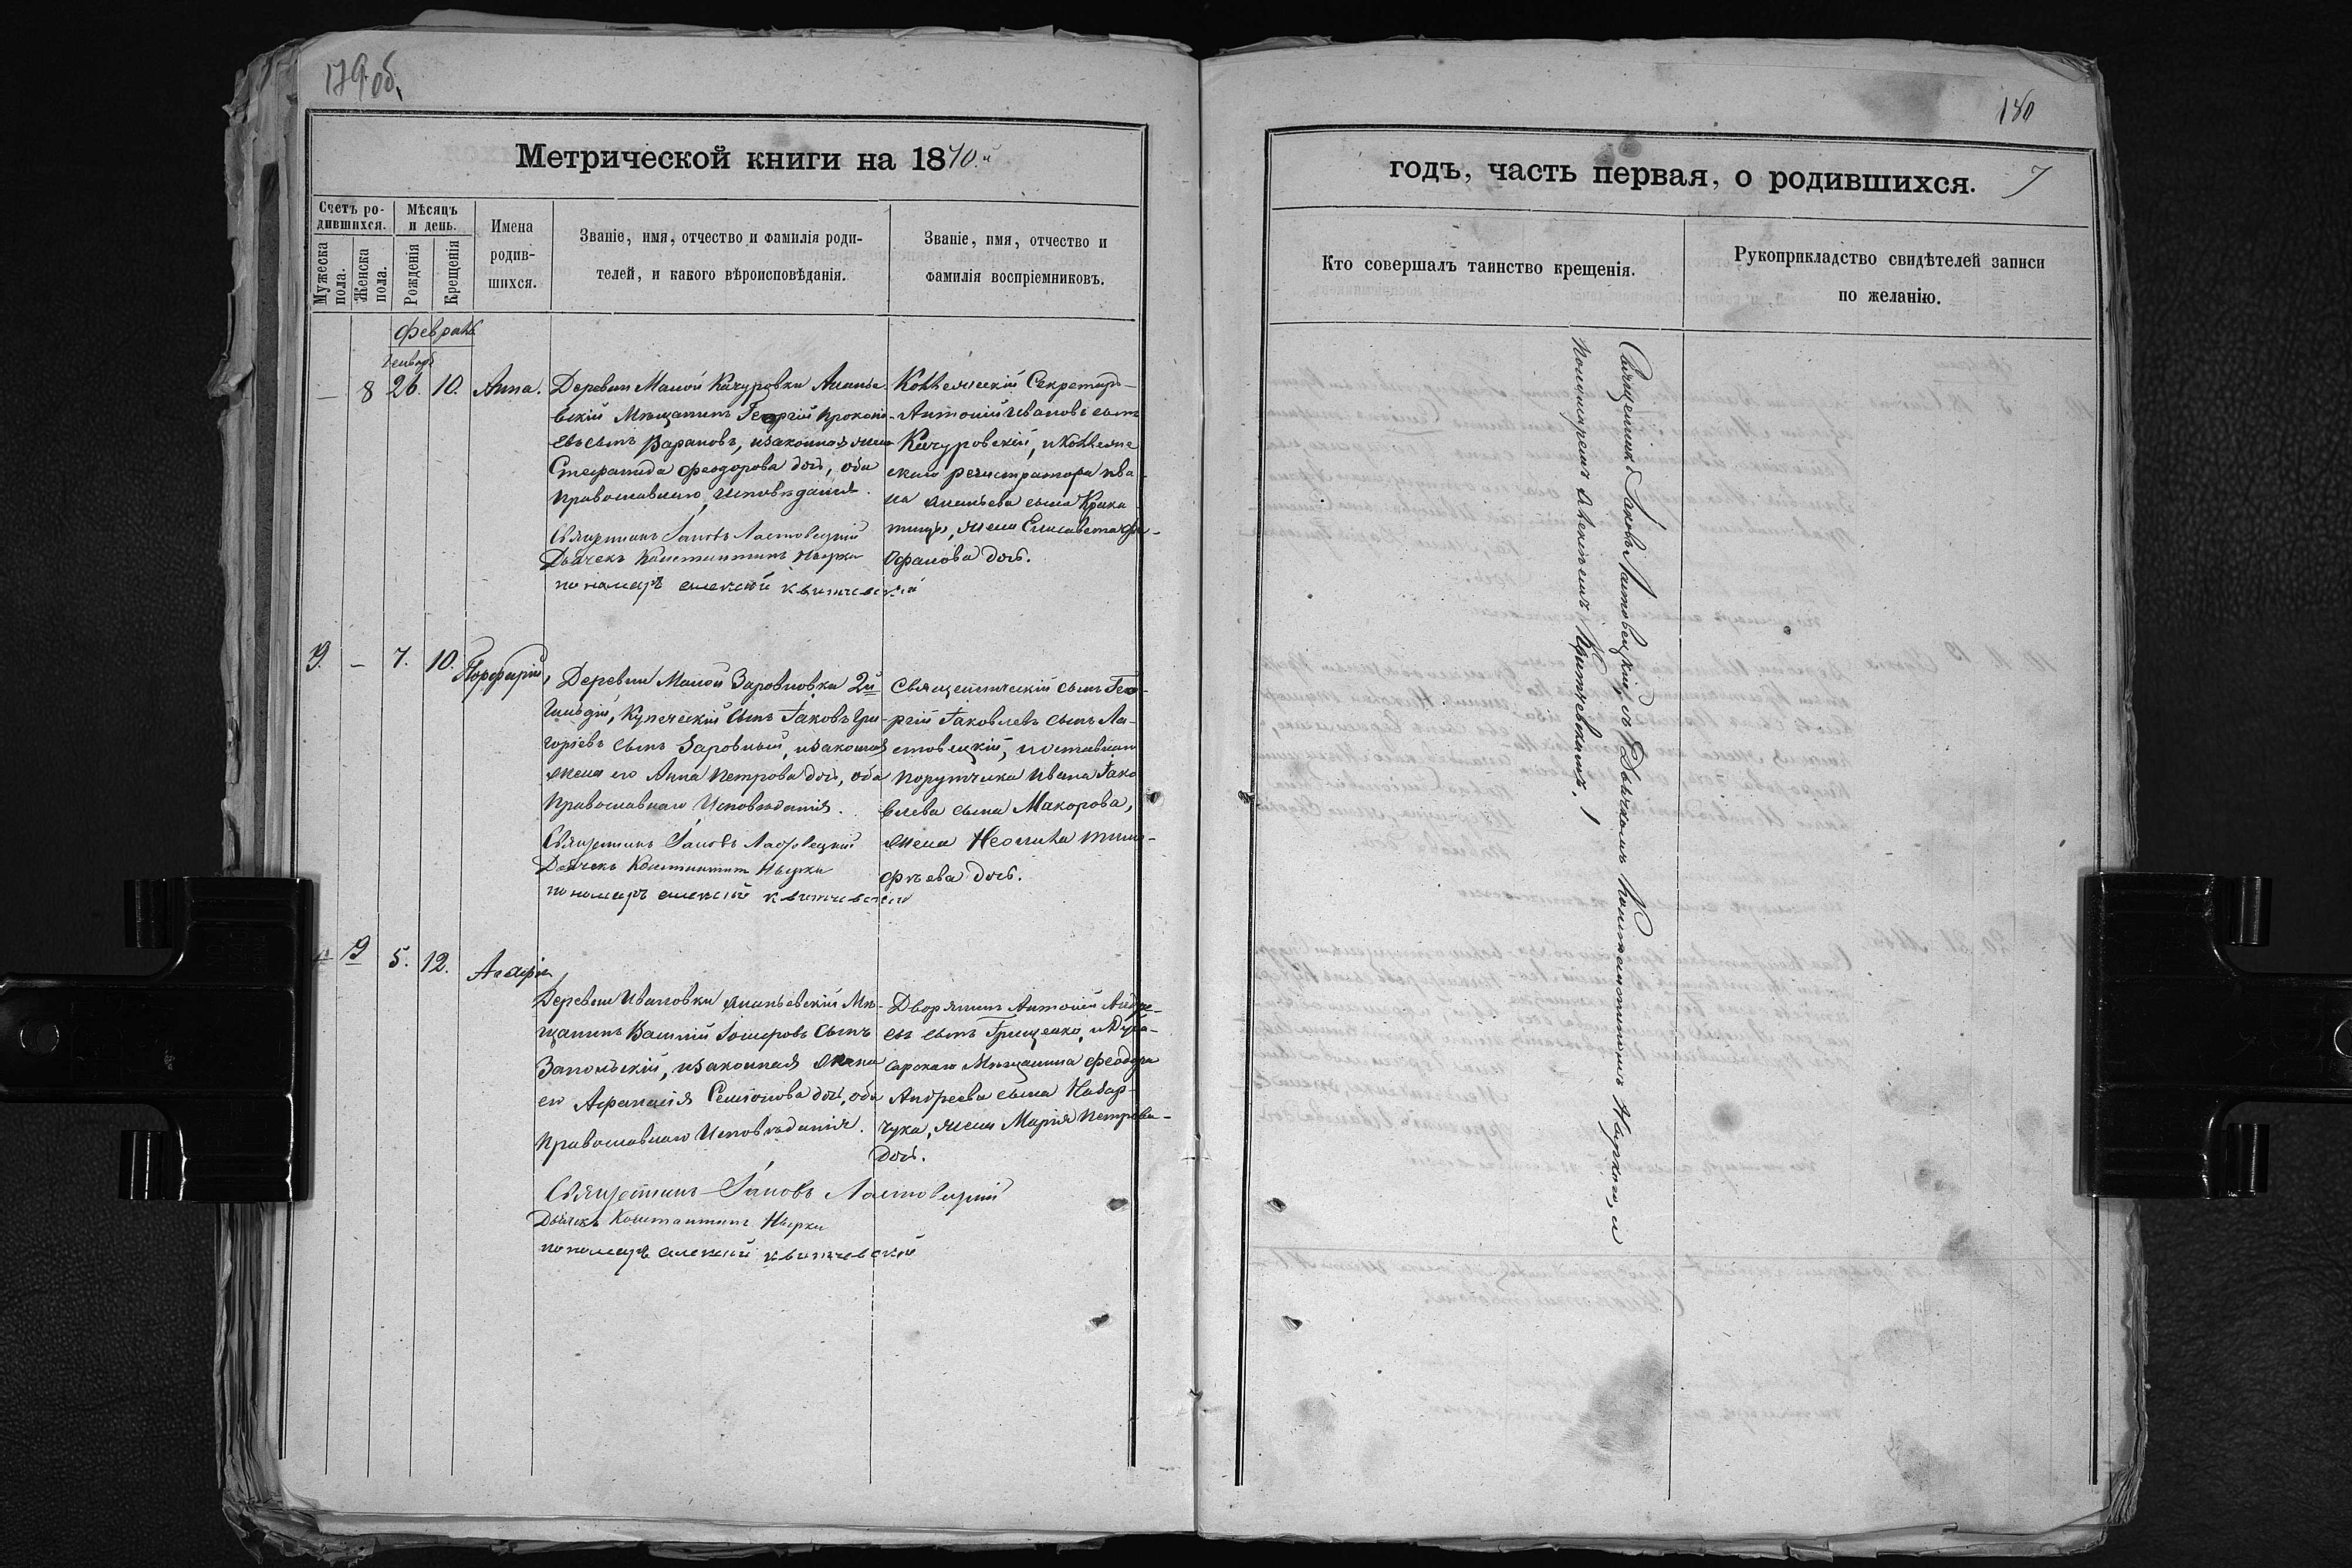 179 об.
Метрической книги на 1870.й
Счетъ ро-
дившихся.
Мужеска пола.
Женска пола.
Мѣсяцъ
и день.
Рожденія
Крещенія
Имена
родив-
шихся.
Званіе, имя, отчество и фамилія роди-
телей, и какого вѣроисповѣданія.
Званіе, имя, отчество и
фамилія воспріемниковъ.
Февраль
Генваря
— 8 26. 10. Анна.
Деревни Малой Качуровки Ананье-
вскій Мѣщанинъ Георгій Прокопі-
евъ сынъ Варановъ, и законная жена
Стефанида Феодорова дочь, оба
Православнаго Исповѣданія.
Священникъ Іаковъ Ластовецкій
Дьячекъ Константинъ Нырко
пономарь Алексій Квитневскій
Коллежскій Секретарь
Антоній Ивановъ сынъ
Качуровскій, и Коллеж
скаго регистратора Ива
на Ананьева сына
жена Елисавета
дочь.
9. — 7. 10. Порфирій,
Деревни Малой Заровновки 2й
Гильдіи, Купеческій Сынъ Іаковъ Гри-
горіевъ сынъ Заровный, и законная
жена его Анна Петрова дочь, оба
Православнаго Исповѣданія.
Священникъ Іаковъ Ластовецкій
Дьячекъ Константинъ Нырко
пономарь Алексій Квитневскій
Священническій сынъ Гео-
ргій Іаковлевъ сынъ Ла-
стовецкій, и отставнаго
порутчика Ивана Іако
влева сына Макорова,
жена Неонила Тимо-
фѣева дочь.
9 5. 12. Агафія
Деревни Ивановки Ананьевскій Мѣ-
щанинъ Василій сынъ
Запольскій, и законная жена
его Афанасія Семіонова дочь, оба
Православнаго Исповѣданія.
Священникъ Іаковъ Ластовецкій
Дьячекъ Константинъ Нырко
пономарь Алексій Квитневскій
Дворянинъ Антоній Андре-
евъ сынъ Грищенко, и Дуба-
сарскаго Мѣщанина Феодора
Андреева сына
жена Марія Петрова
дочь.
180
годъ, часть первая, о родившихся. 7
Кто совершалъ таинство крещенія.
Рукоприкладство свидѣтелей записи
по желанію.
Священникъ Іаковъ Ластовецкій, съ Дьячкомъ Константиномъ Ныркою, и
пономаремъ Алексѣемъ Квитневскимъ.